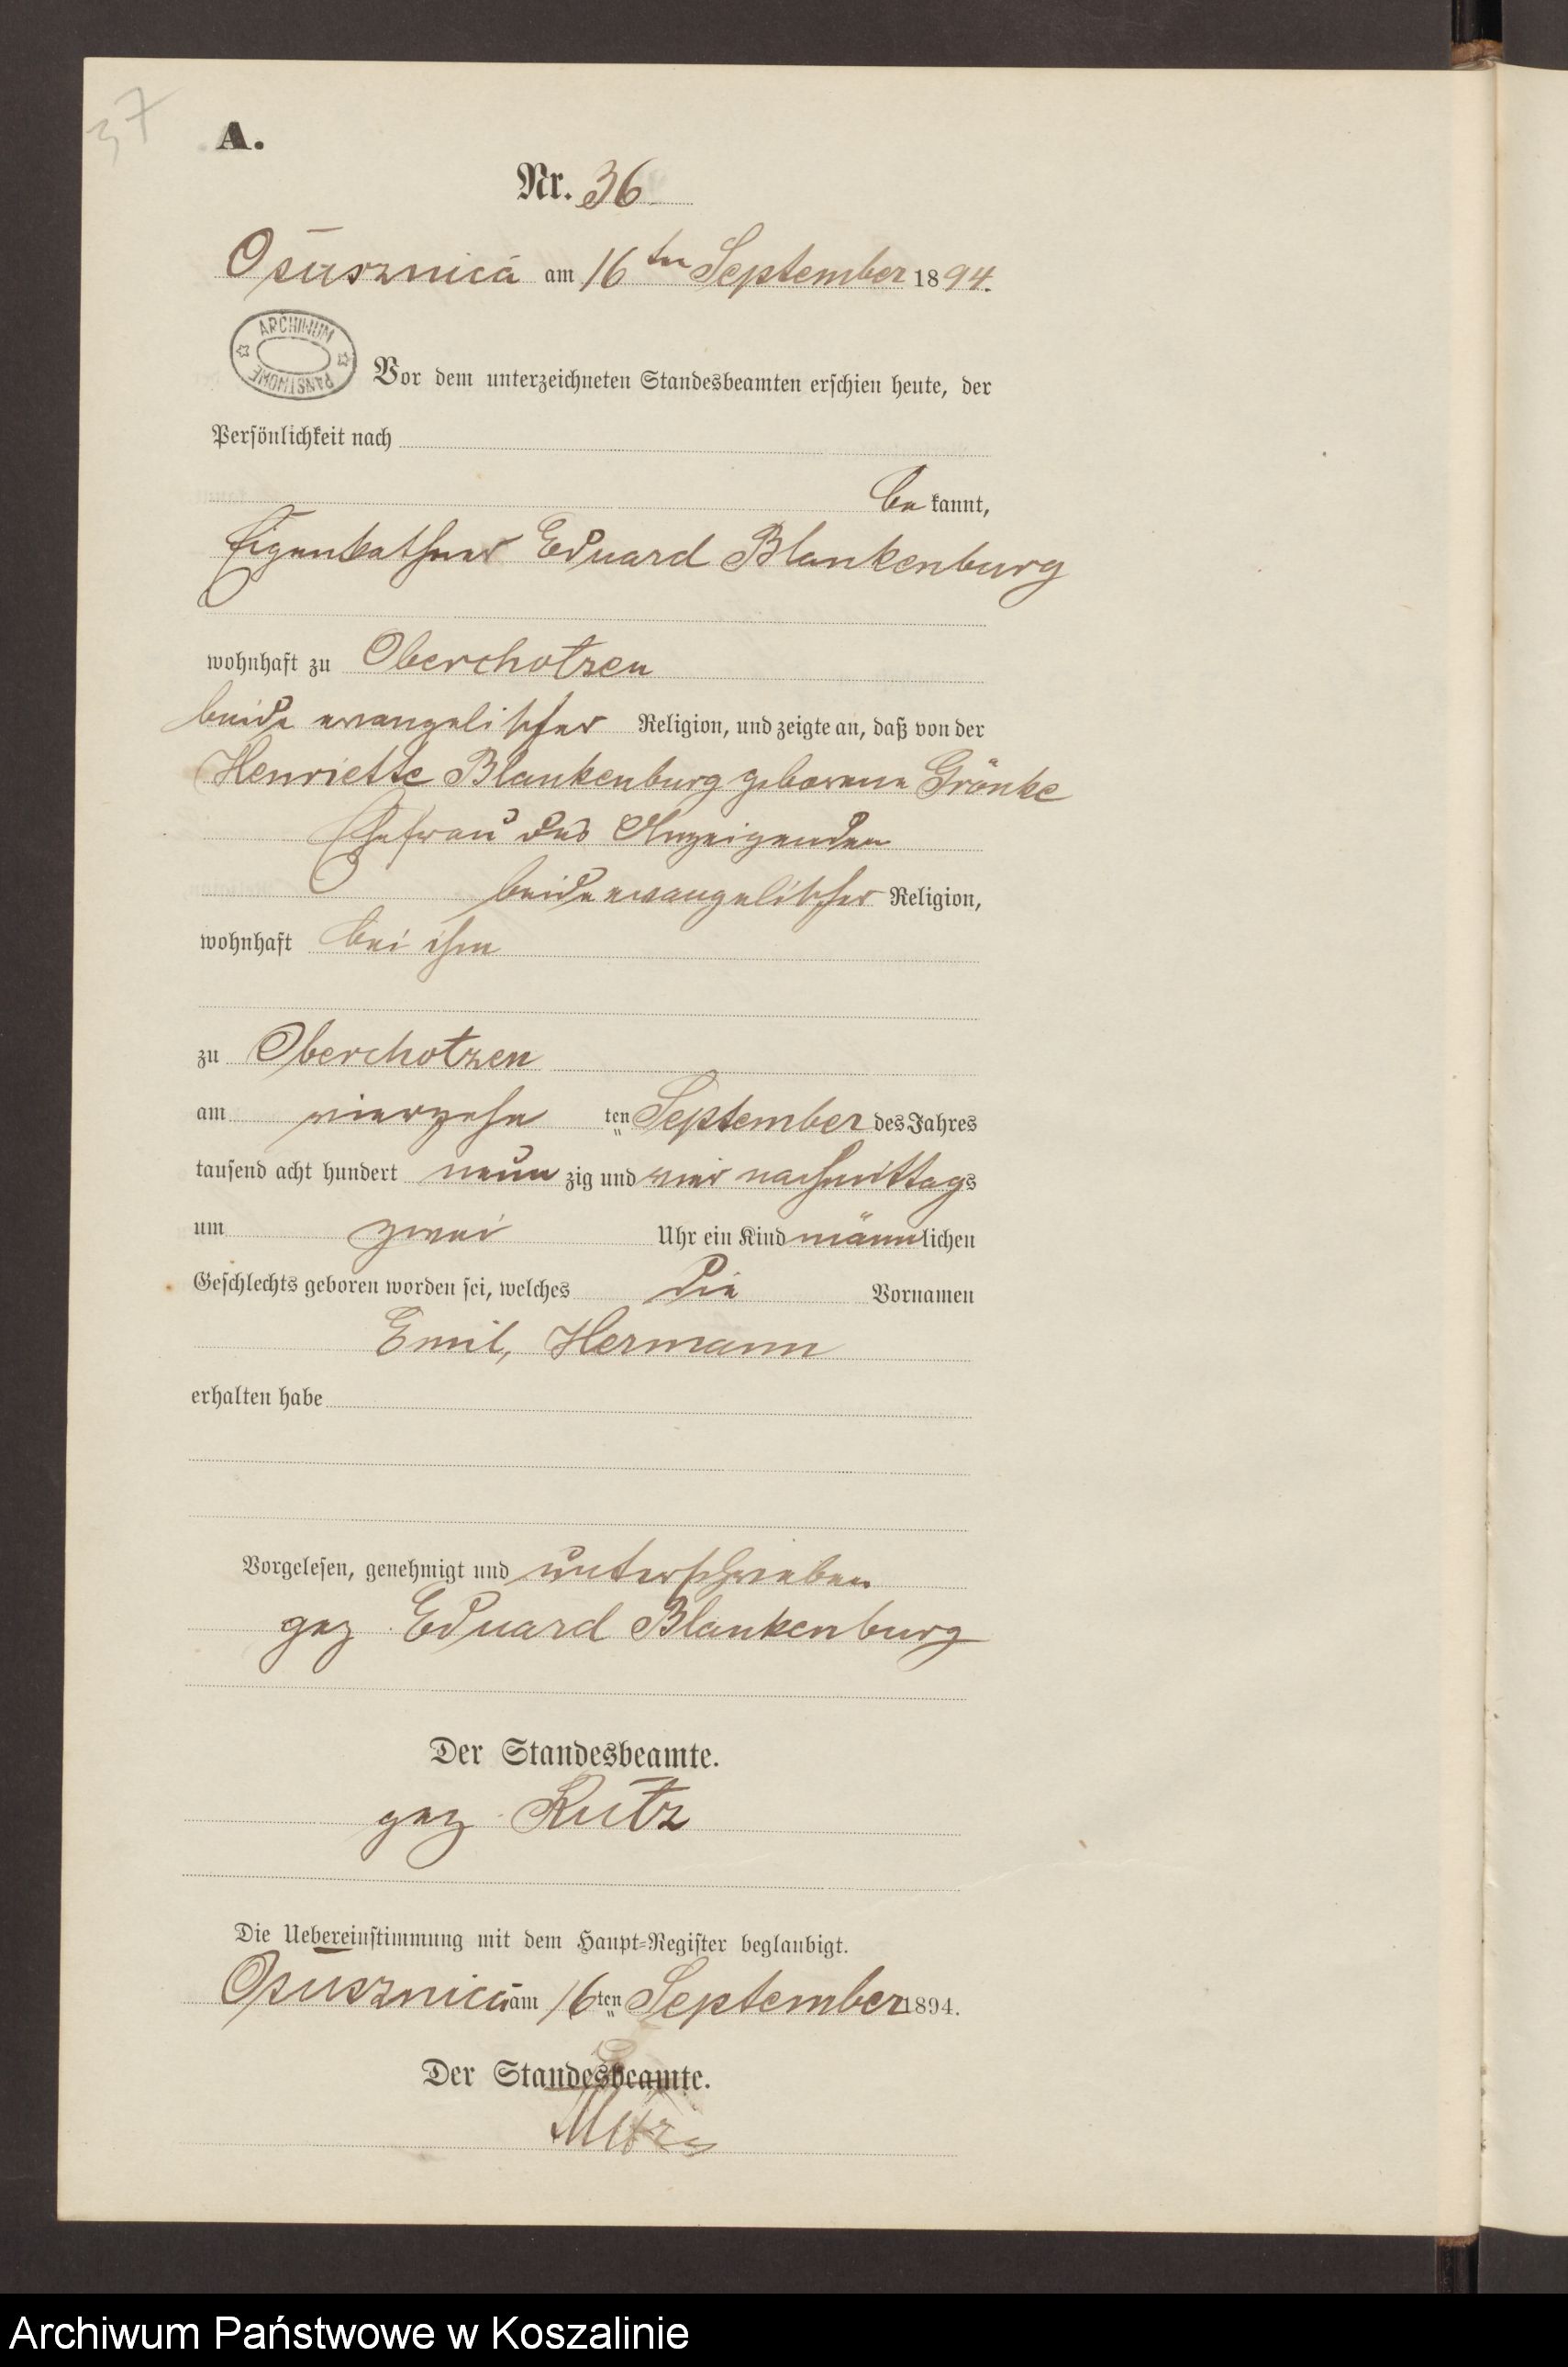 37
A.
Nr. 36
Osusznica am 16ten September 1894.
ARCHIWUM PAŃSTWOWE
Vor dem unterzeichneten Standesbeamten erschien heute, der
Persönlichkeit nach
be kannt,
Eigenkathner Eduard Blankenburg
wohnhaft zu Oberchotzen
beide evangelischer Religion, und zeigte an, daß von der
Henriette Blankenburg geborene Grönke
Ehefrau des Anzeigenden
beide evangelischer Religion,
wohnhaft bei ihm
zu Oberchotzen
am vierzehn ten September des Jahres
tausend acht hundert neun zig und vier nachmittags
um zwei Uhr ein Kind männlichen
Geschlechts geboren worden sei, welches die Vornamen
Emil, Hermann
erhalten habe
Vorgelesen, genehmigt und unterschrieben
gez. Eduard Blankenburg
Der Standesbeamte.
gez. Rutz
Die Uebereinstimmung mit dem Haupt-Register beglaubigt.
Osusznica am 16ten September 1894.
Der Standesbeamte.
Archiwum Państwowe w Koszalinie